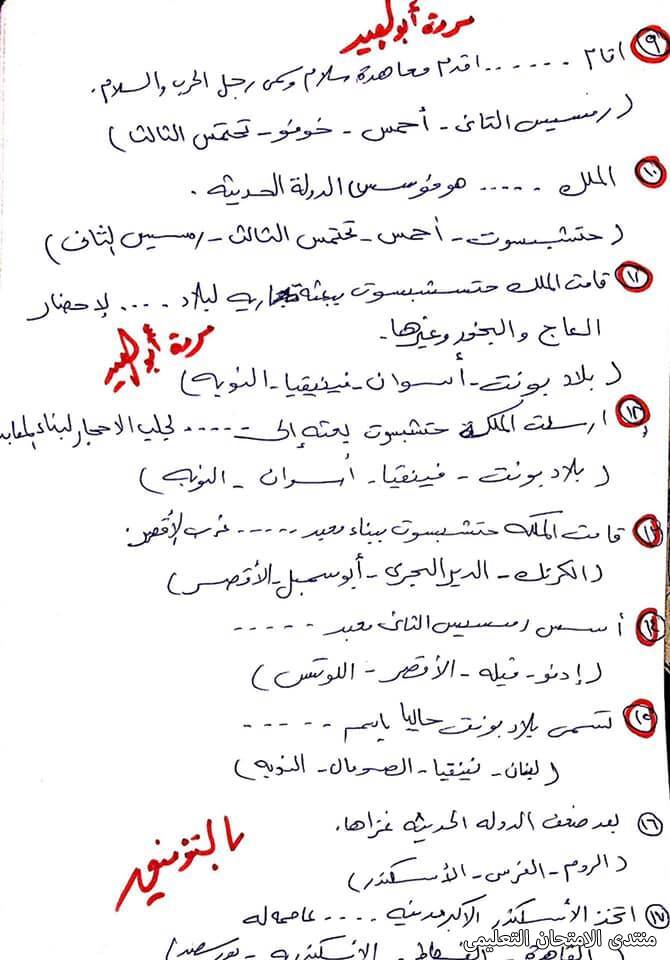 مروة أبو العبيد
٩ اقام ...... اقدم معاهدة سلام وسمى رجل الحرب والسلام.
(رمسيس الثانى - أحمس - خوفو - تحتمس الثالث)
١٠ الملك ..... هو مؤسس الدولة الحديثه .
(حتشبسوت - أحمس - تحتمس الثالث - رمسيس الثانى)
قامت الملكه حتشبسوت ببعثه تجاريه لبلاد .... لإحضار
العاج والبخور وغيرها.
مروة أبو العبيد
(بلاد بونت - أسوان - فينيقيا - النوبه)
١٢ ارسلت الملكه حتشبسوت بعثه إلى ..... لجلب الاحجار لبناء المعابد
(بلاد بونت - فينقيا - أسوان - النوبه)
١٣ قامت الملكه حتشبسوت ببناء معبد ..... غرب الأقصر.
(الكرنك - الدير البحرى - أبو سمبل - الأقصر)
١٤ أسس رمسيس الثانى معبد .....
(إدفو - فيله - الأقصر - اللوتس)
١٥ تسمى بلاد بونت حاليا باسم .....
(لبنان - فينقيا - الصومال - النوبه)
١٦ بعد ضعف الدوله الحديثه غزاها.
(الروم - الفرس - الأسكندر)
بالتوفيق
١٧ اتخذ الأسكندر الاكبر مدينه .... عاصمه له
(القاهرة - الفسطاط - الاسكندريه - بورسعيد)
منتدى الامتحان التعليمى